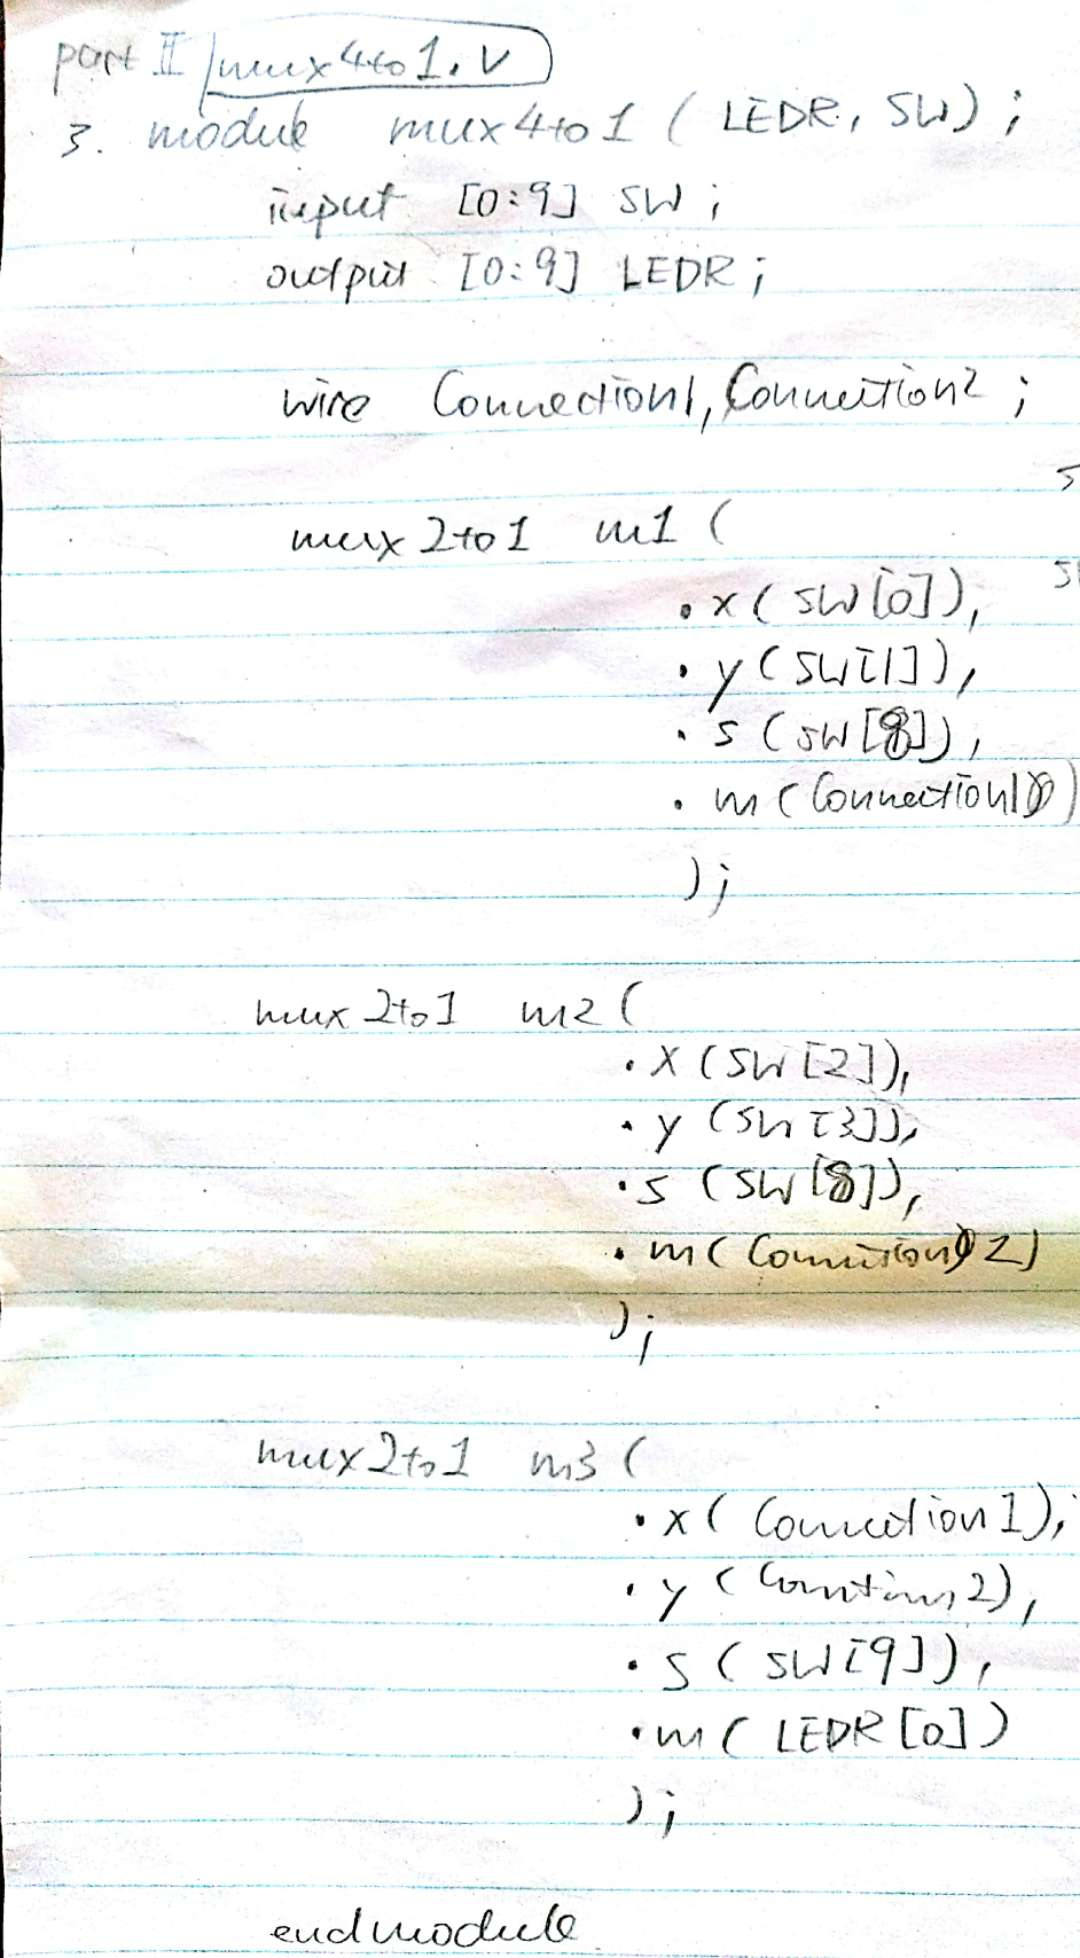 part II mux4to1.v
3. module mux4to1 (LEDR, SW);
input [0:9] SW;
output [0:9] LEDR;
wire Connection1, Connection2;
mux2to1 m1 (
.x(SW[0]),
.y(SW[1]),
.s(SW[8]),
.m(Connection1)
);
mux2to1 m2 (
.x(SW[2]),
.y(SW[3]),
.s(SW[8]),
.m(Connection2)
);
mux2to1 m3 (
.x(Connection1),
.y(Connection2),
.s(SW[9]),
.m(LEDR[0])
);
endmodule